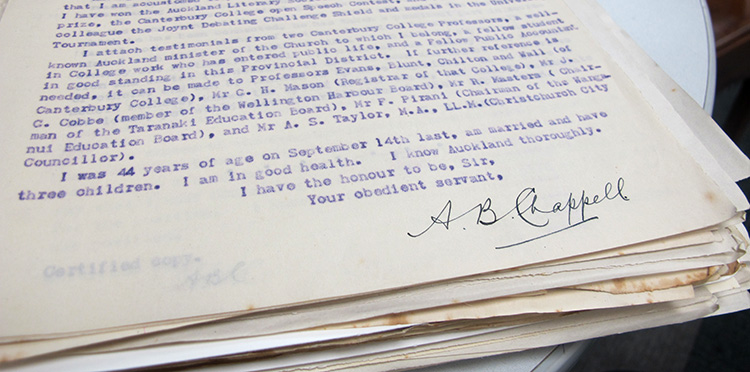 that I am accustomed
I have won the Auckland Literary
prize, the Canterbury College open Speech Contest, and
colleague the Joynt Debating Challenge Shield and medals in the Univer
Tournament.
I attach testimonials from two Canterbury College Professors, a well-
known Auckland minister of the Church to which I belong, a fellow student
in College work who has entered public life, and a Fellow Public Accountant
in good standing in this Provincial District. If further reference is
needed, it can be made to Professors Evans, Blunt, Chilton and Scott (of
Canterbury College), Mr C. H. Mason (Registrar of that College), Mr J.
C. Cobbe (member of the Wellington Harbour Board), Mr D. Masters (Chair-
man of the Taranaki Education Board), Mr F. Pirani (Chairman of the Wanga-
nui Education Board), and Mr A. S. Taylor, M.A., LL.M.(Christchurch City
Councillor).
I was 44 years of age on September 14th last, am married and have
three children. I am in good health. I know Auckland thoroughly.
I have the honour to be, Sir,
Your obedient servant,
A. B. Chappell
Certified copy.
ABC.